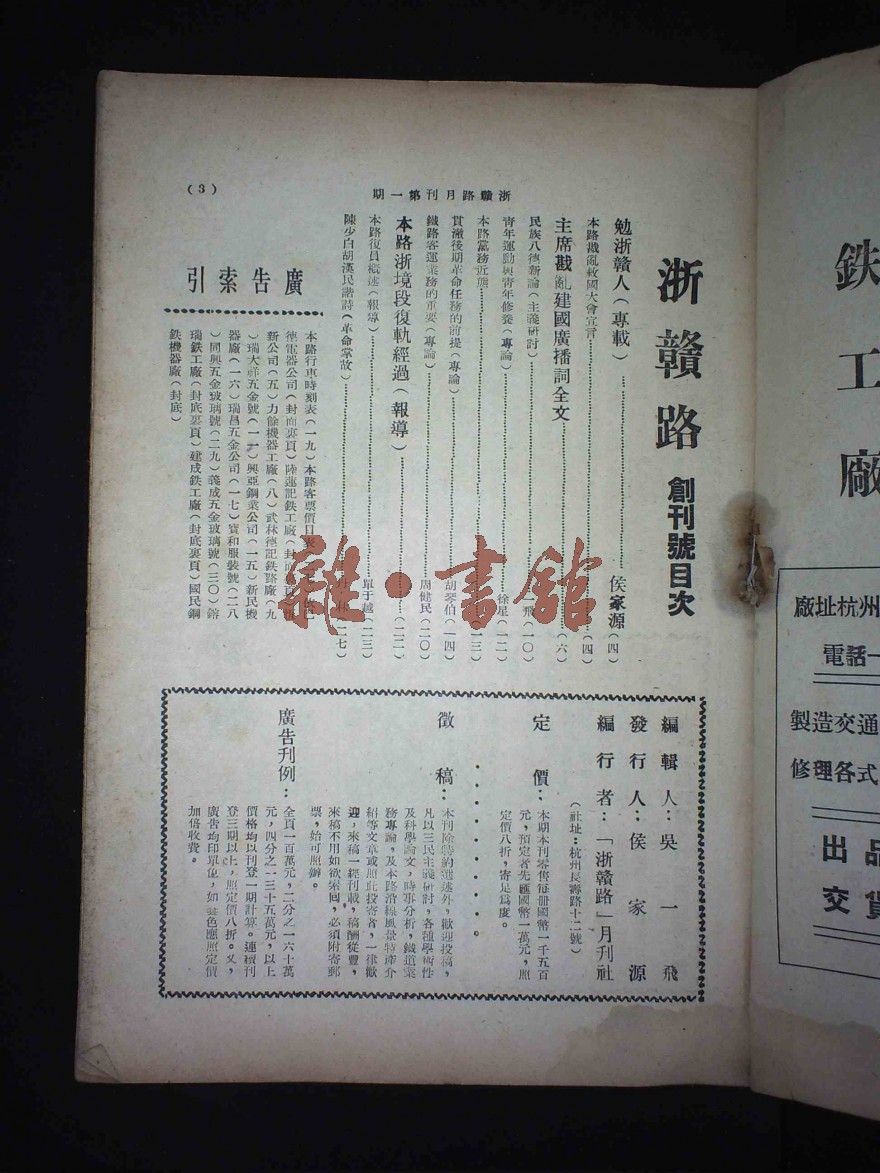 浙贛路月刊第一期
(3)
浙贛路 創刊號目次
勉浙贛人（專載）侯家源（四）
本路戡亂救國大會宣言（四）
主席戡亂建國廣播詞全文（六）
民族八德新論（主義研討）飛（一〇）
青年運動與青年修養（專論）徐星（一二）
本路黨務近態（一三）
貫澈後期革命任務的前提（專論）胡琴伯（一四）
鐵路客運業務的重要（專論）周健民（二〇）
本路浙境段復軌經過（報導）（二二）
本路復員概述（報導）單于越（二三）
陳少白胡漢民諧詩（革命掌故）林（二七）
廣告索引
本路行車時刻表（一九）本路客票價目表
德電器公司（封面裏頁）陸蓮記鉄工廠（封面裏頁）
新公司（五）力餘機器工廠（八）武林德記鉄路廠（九
）瑞大祥五金號（一一）興亞鋼業公司（一五）新民機
器廠（一六）瑞昌五金公司（一七）寶和服裝號（二八
）同興五金玻璃號（二九）義成五金玻璃號（三〇）鎔
瑞鉄工廠（封底裏頁）建成鉄工廠（封底裏頁）國民鋼
鉄機器廠（封底）
編輯人：吳一飛
發行人：侯家源
編行者：「浙贛路」月刊社
（社址：杭州長壽路十二號）
定價：本期本刊零售每冊國幣一千五百
元，預定者先匯國幣一萬元，照
定價八折，寄足為度。
徵稿：本刊除特約選述外，歡迎投稿，
凡以三民主義研討，各種學術性
及科學論文，時事分析，鐵道業
務專論，及本路沿線風景特產介
紹等文章或照片投寄者，一律歡
迎，來稿一經刊載，稿酬從豐，
來稿不用如欲索回，必須附寄郵
票，始可照辦。
廣告刊例：全頁一百萬元，二分之一六十萬
元，四分之一三十五萬元，以上
價格均以刊登一期計算。連續刊
登三期以上，照定價八折。又，
廣告均印單色，如套色應照定價
加倍收費。
雜·書館
鉄工廠
廠址杭州
電話一
製造交通
修理各式
出品
交貨